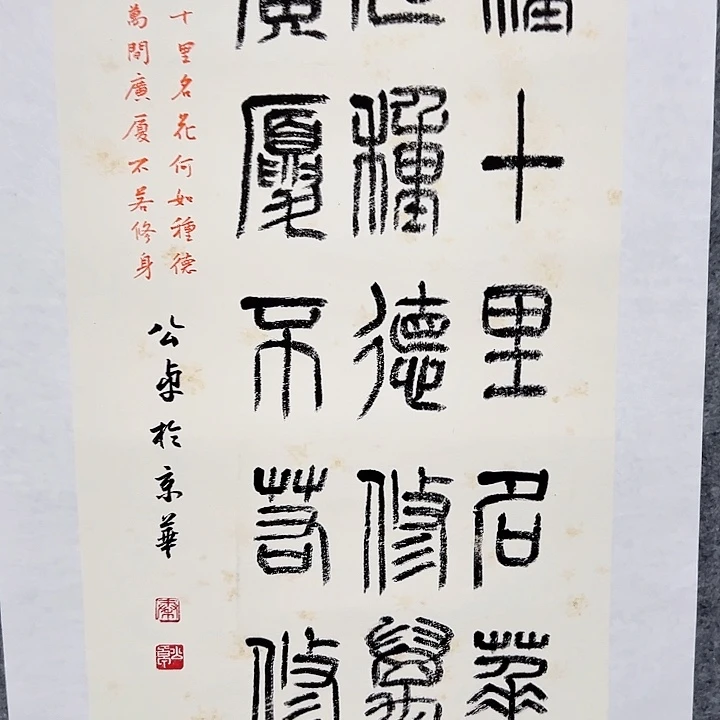 種十里名華
種德修萬
廣廈不若修
十里名花何如種德
萬間廣廈不若修身
公於京華